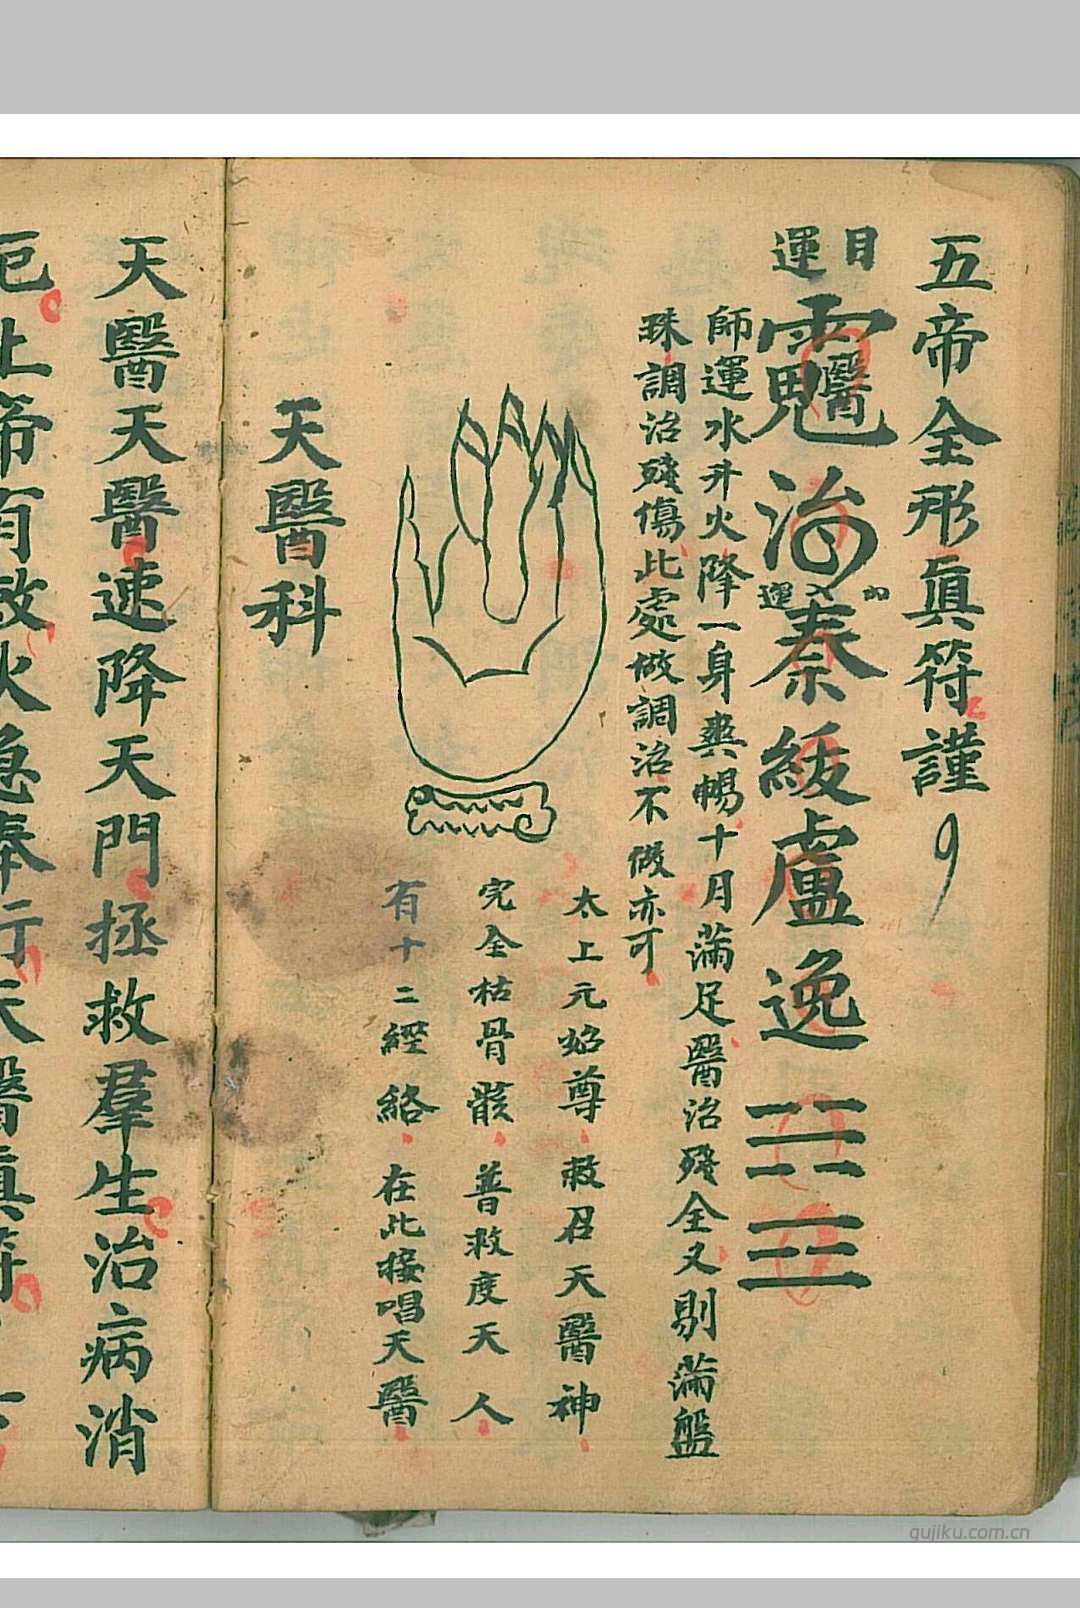 五帝全形眞符謹
日
運
治
秦緩盧逸
運 入
師運水升火降一身爽暢十月滿足醫治殘全又剔滿盤
珠調治殘傷此處做調治不做亦可
太上元始尊敕召天醫神
完全枯骨骸普救度天人
有十二經絡在此接唱天醫
天醫科
天醫天醫速降天門拯救羣生治病消
厄上帝有敕火急奉行天醫眞符
qujiku.com.cn